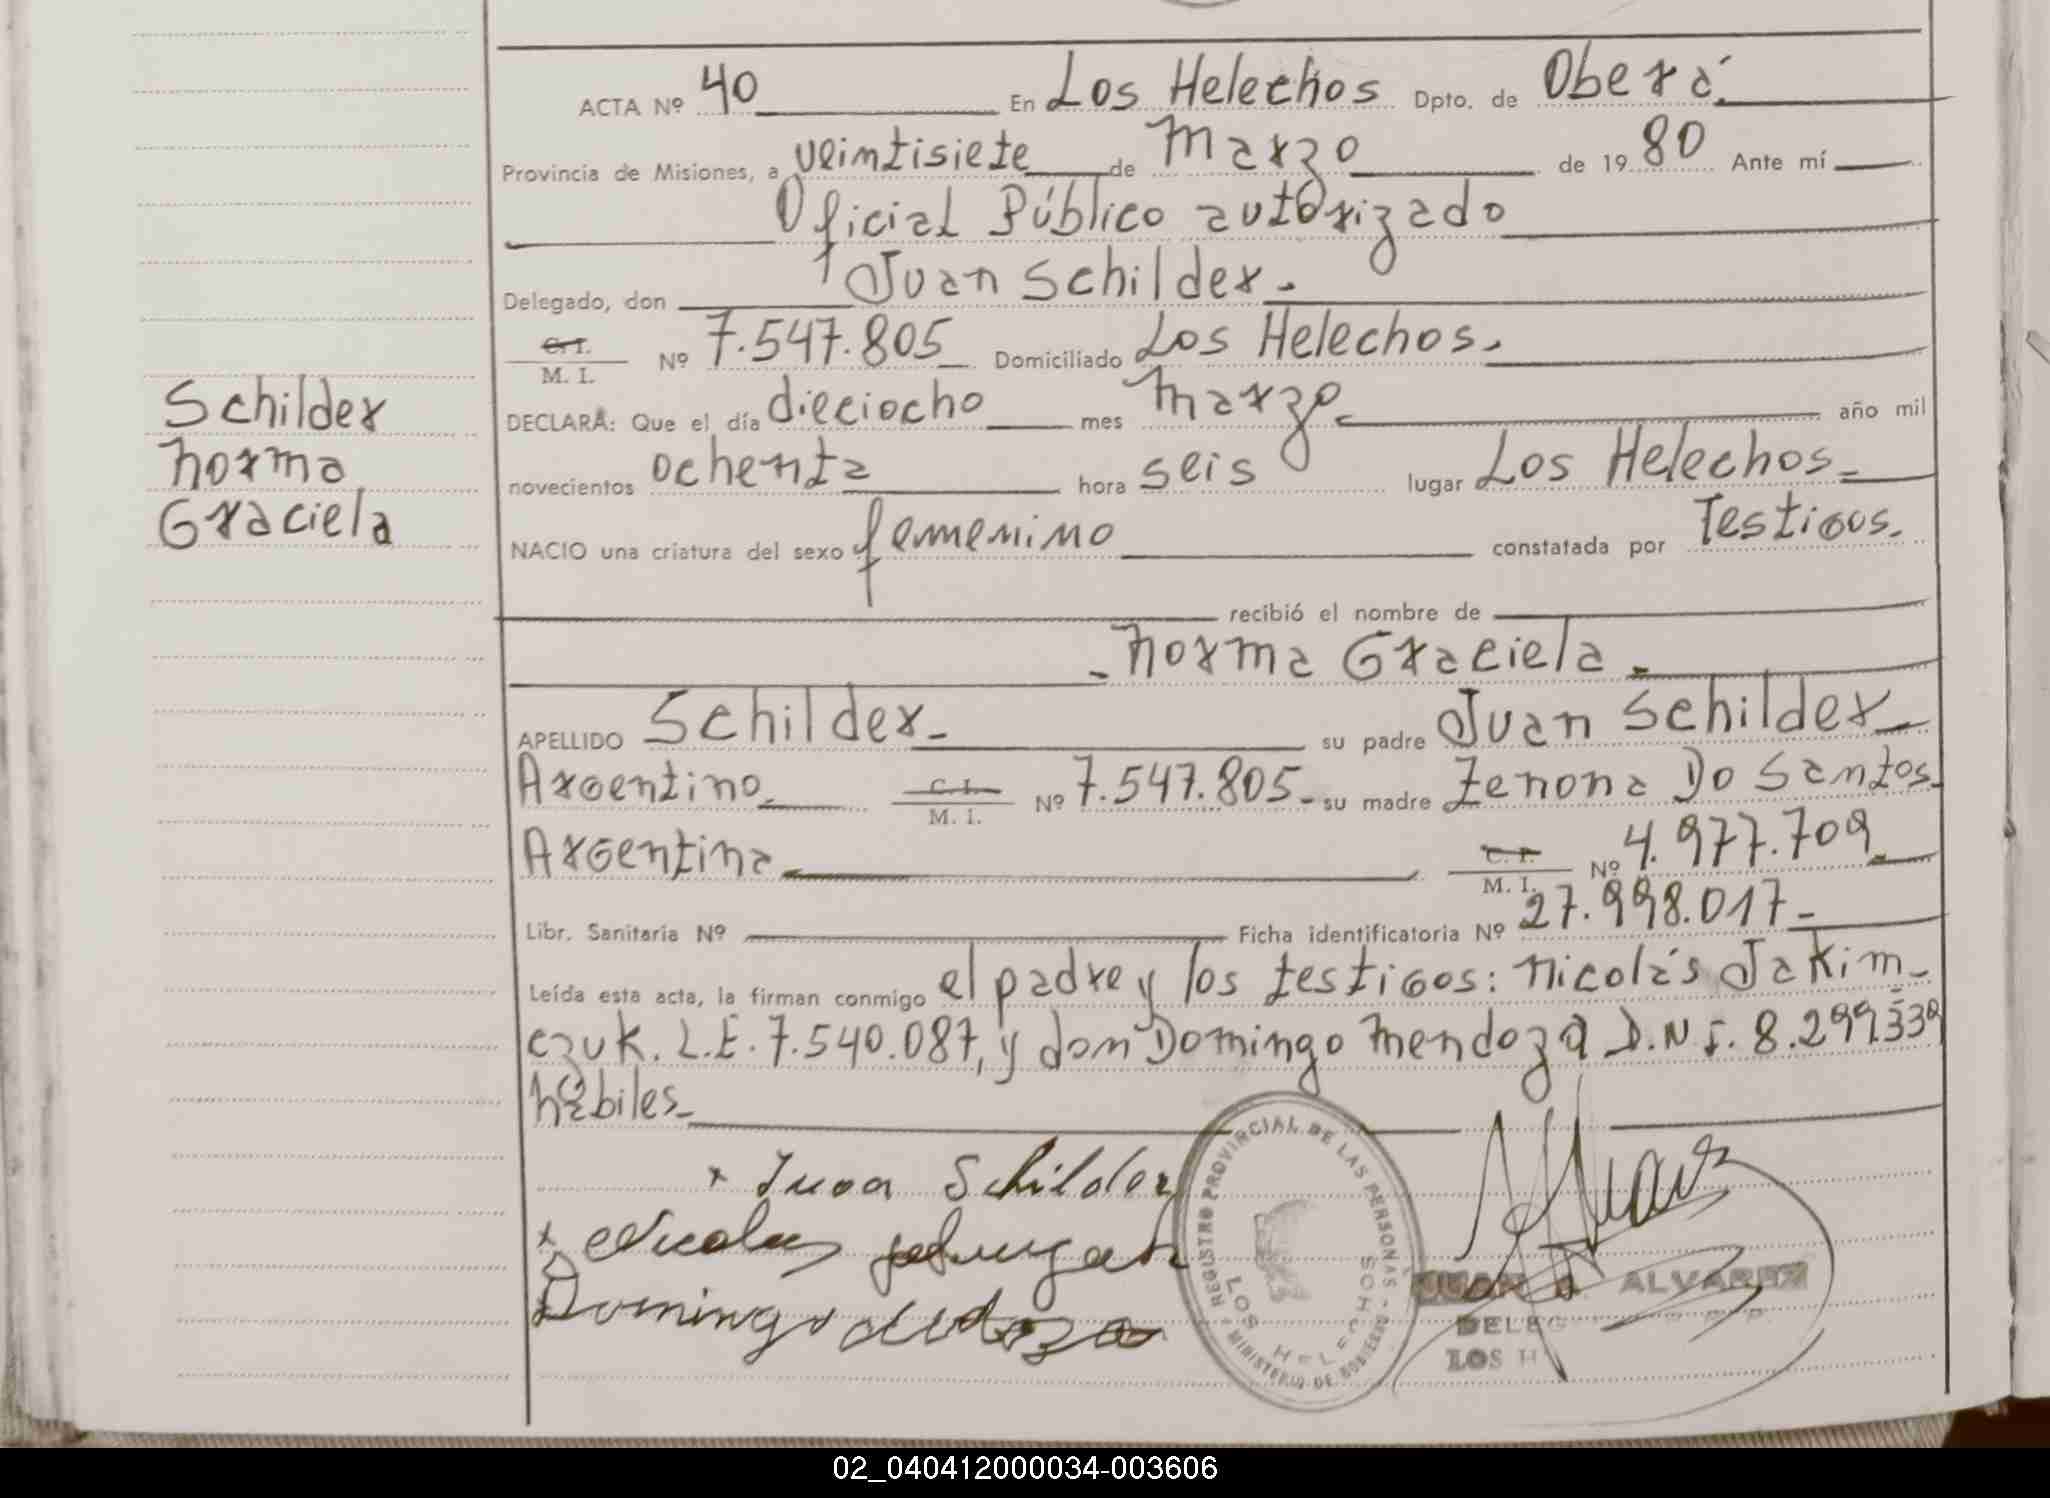 ACTA Nº 40 En Los Helechos Dpto. de Oberá.
Provincia de Misiones, a veintisiete de Marzo de 1980 Ante mí
Oficial Público autorizado
Delegado, don Juan Schilder.
C. I. M. I. Nº 7.547.805 Domiciliado Los Helechos.
DECLARA: Que el día dieciocho mes Marzo año mil
novecientos ochenta hora seis lugar Los Helechos
NACIO una criatura del sexo femenino constatada por Testigos.
recibió el nombre de
Norma Graciela.
APELLIDO Schilder su padre Juan Schilder
Argentino C. I. M. I. Nº 7.547.805 su madre Zenona Do Santos
Argentina C. I. M. I. Nº 4.977.709
Libr. Sanitaria Nº Ficha identificatoria Nº 27.998.017
Leída esta acta, la firman conmigo el padre y los testigos: Nicolás Jakim-
czuk. L.E. 7.540.087, y don Domingo Mendoza D.N.I. 8.299.339
hábiles
Schilder
Norma
Graciela
x Juan Schilder
x Nicolas
Domingo
REGISTRO PROVINCIAL DE LAS PERSONAS
MINISTERIO DE GOBIERNO
LOS HELECHOS
JUAN A. ALVAREZ
DELEG
LOS H
02_040412000034-003606